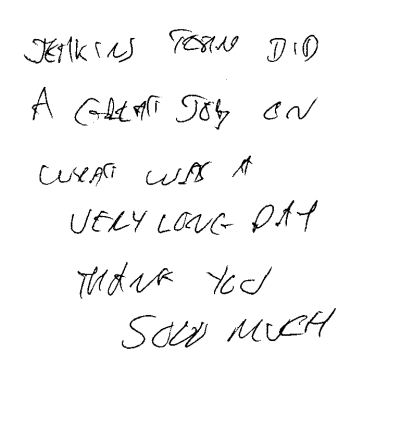 JENKINS TEAM DID
A GREAT JOB ON
WHAT WAS A
VERY LONG DAY
THANK YOU
SOOO MUCH